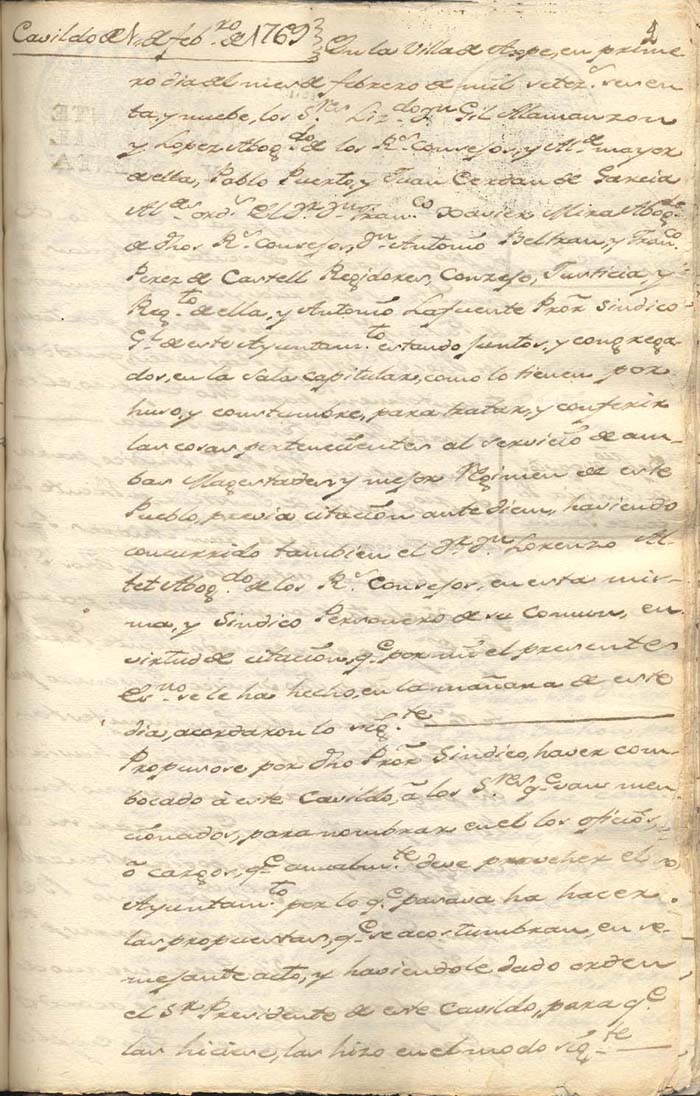 2
Cavildo de 1,, de feb.ro de 1769
En la Villa de Aspe, en prime
ro dia del mes de febrero de mil setez.s sesen
ta, y nuebe, los S.res Liz.do D.n Gil Alamanzon
y Lopez Abog.do de los R.s Consejos, y Al.de mayor
de ella, Pablo Puerto, y Juan Cerdan de Garcia
Al.des ord.s El D.r D.n Fran.co Xavier Mira Abog.do
de dhos R.s Consejos, D.n Antonio Beltran, y Fran.co
Perez de Castell Regidores, Conzejo, Justicia, y
Reg.to de ella, y Antonio Lafuente Pror Sindico
G.l de este Ayuntam.to estando juntos, y congrega
dos, en la Sala Capitular, como lo tienen por
huso, y constumbre, para tratar, y conferir
las cosas pertenecientes al servicio de am
bas Magestades y mejor Regimen de este
Pueblo, previa citacion ante diem, haviendo
concurrido tambien el D.r D.n Lorenzo Al
tet Abog.do de los R.s Consejos, en esta mis
ma, y Sindico Personero de su Comun, en
virtud de citacion, q.e por mi el presente
Es.no se le ha hecho, en la mañana de este
dia, acordaron lo sig.te
Propusose por dho Pror Sindico, haver com
bocado à este Cavildo, à los S.res q.e van men
cionados, para nombrar en el los oficios,
ò cargos, q.e anualm.te deve proveher el
Ayuntam.to por lo q.e pasava ha hacer
las propuestas, q.e se acostumbran, en se
mejante acto, y haviendole dado orden
el S.r Presidente de este Cavildo, para q.e
las hiciese, las hizo en el modo sig.te